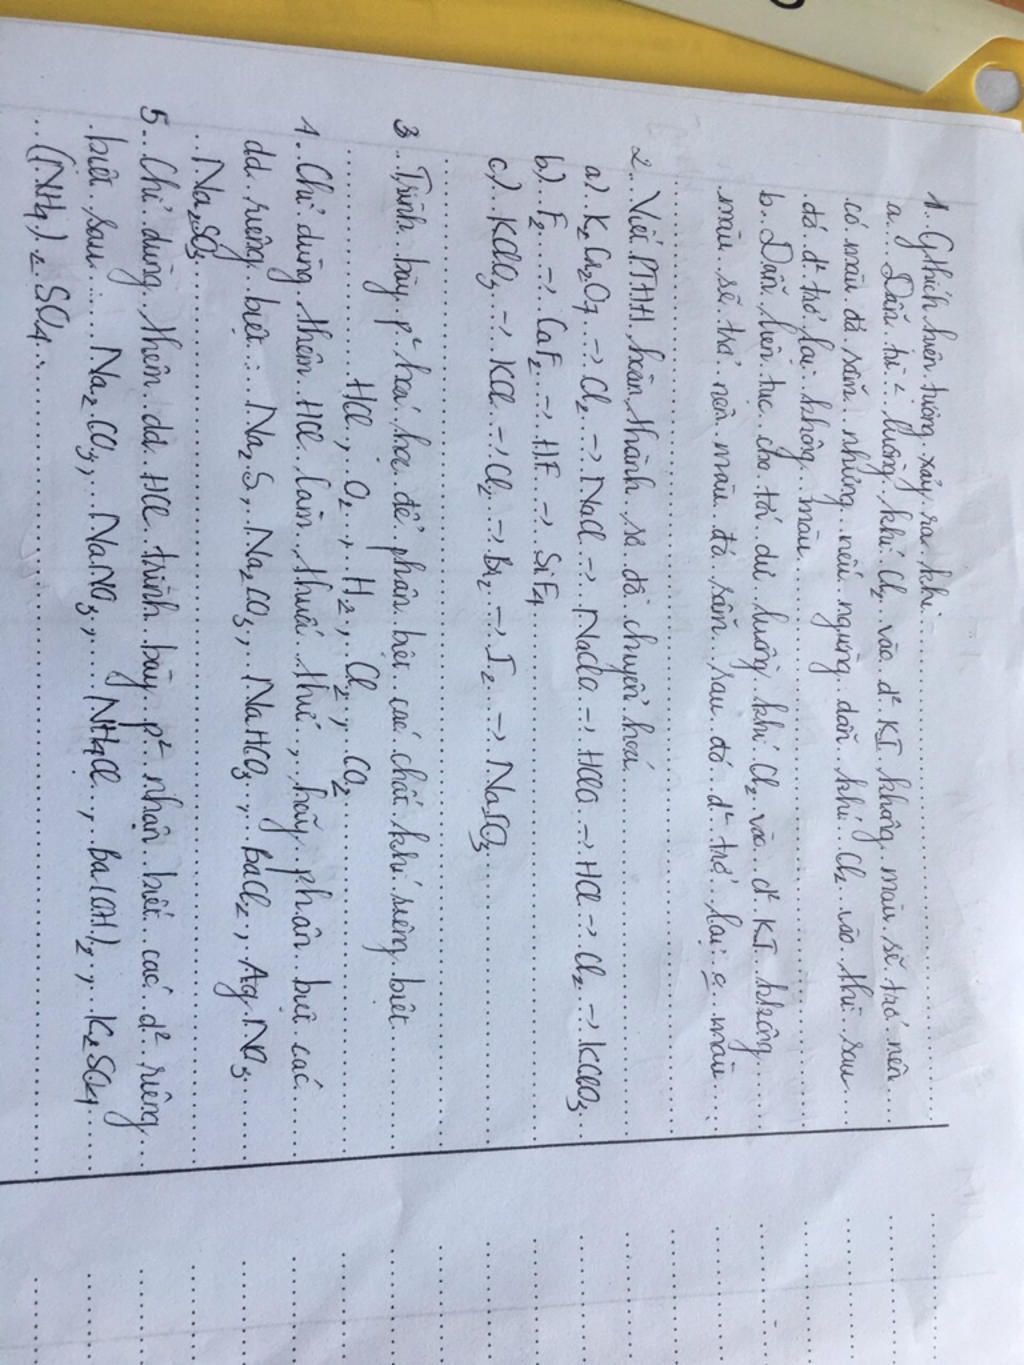 1. Gthích hiện tượng xảy ra khi
a. Dẫn từ² luồng khí Cl₂ vào d² KI không màu sẽ trở nên
có màu đỏ sẫm nhưng nếu ngưng dẫn khí Cl₂ vào thì sau
đó d² trở lại không màu
b. Dẫn liên tục cho tới dư luồng khí Cl₂ vào d² KI không
màu sẽ trở nên màu đỏ sẫm sau đó d² trở lại o màu
2. Viết PTHH hoàn thành sơ đồ chuyển hoá
a) K₂Cr₂O₇ → Cl₂ → NaCl → NaClO → HClO → HCl → Cl₂ → KClO₃
b) F₂ → CaF₂ → HF → SiF₄
c) KClO₃ → KCl → Cl₂ → Br₂ → I₂ → NaIO₃
3. Trình bày p² hoá học để phân biệt các chất khí riêng biệt
HCl, O₂, H₂, Cl₂, CO₂
4. Chỉ dùng thêm HCl làm thuốc thử, hãy phân biệt các
dd riêng biệt: Na₂S, Na₂CO₃, NaHCO₃, BaCl₂, AgNO₃
Na₂SO₃
5. Chỉ dùng thêm dd HCl trình bày p² nhận biết các d² riêng
biệt sau: Na₂CO₃, NaNO₃, NH₄Cl, Ba(OH)₂, K₂SO₄
(NH₄)₂SO₄